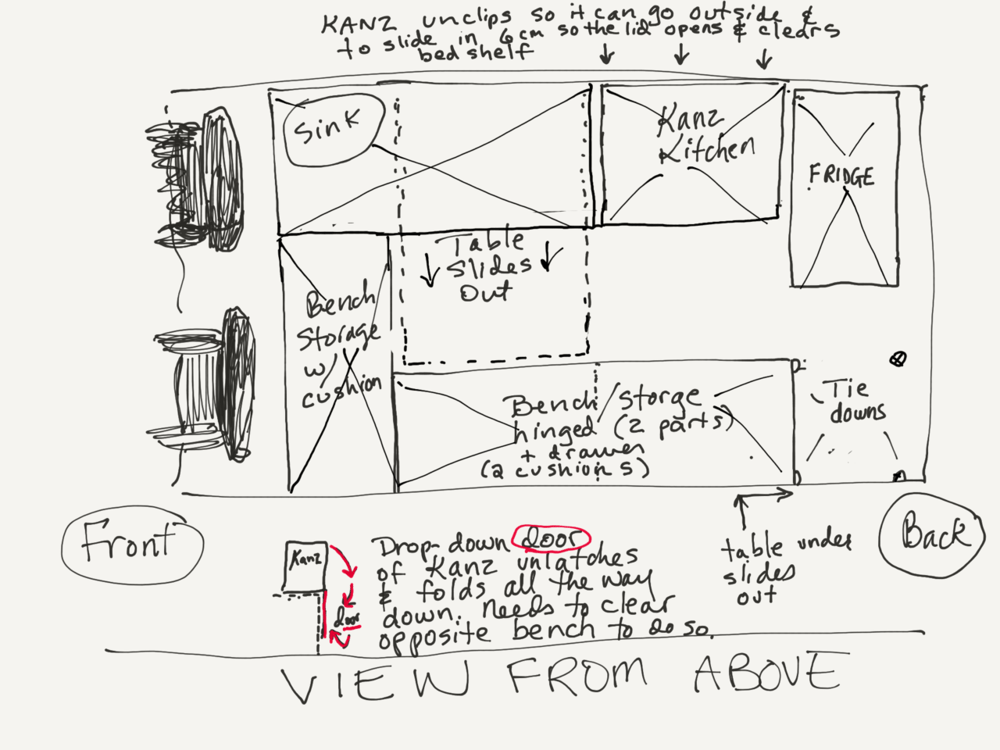 KANZ unclips so it can go outside &
to slide in 6cm so the lid opens & clears
bed shelf
Sink
Kanz
Kitchen
FRIDGE
Table
Slides
Out
Bench
Storage
w/
cushion
Bench/Storge
hinged (2 parts)
+ drawer
(2 cushions)
Tie
downs
Front
Back
Kanz
door
Drop-down door
of Kanz unlatches
& folds all the way
down. needs to clear
opposite bench to do so.
table under
slides
out
VIEW FROM ABOVE